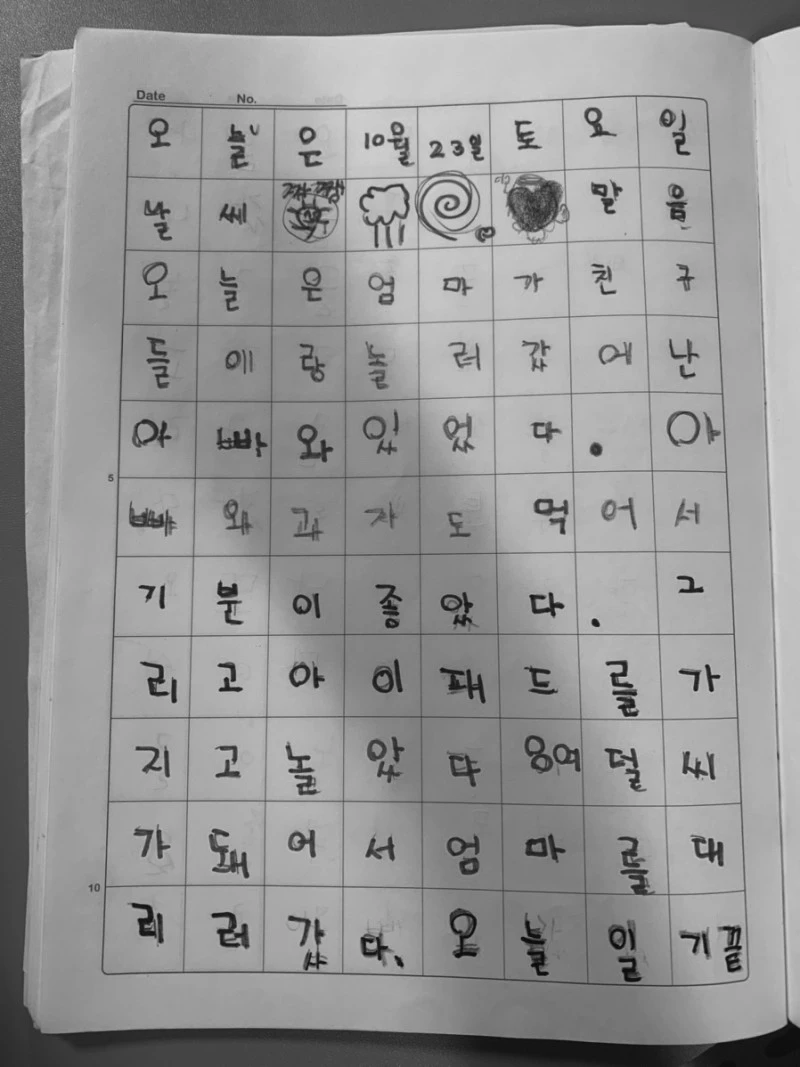 Date No.
오늘은 10월 23일 토요일
날씨 말음
오늘은 엄마가 친구
들에랑 놀러갔어 난
아빠와 있었다. 아
5
빠와 과자도 먹어서
기분이 좋았다. 그
리고 아이패드를 가
지고 놀았다 용여덜씨
가 돼어서 엄마를 대
10
리러 갔다. 오늘 일기 끝